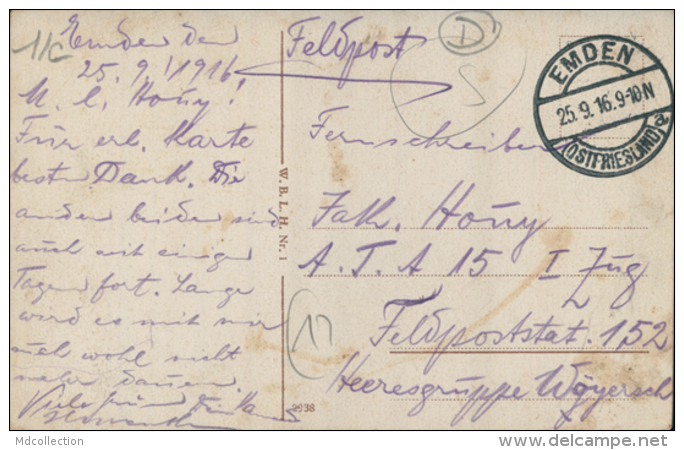 Emden den
25.9.1916
M. l. Hony!
Für erl. Karte
besten Dank. Die
anden beiden sind
auch seit einigen
Tagen fort. Lange
wird es mit mir
auch wohl nicht
mehr dauern.
Viele
Feldpost
Fernschreiber
Jak. Hony
A.T.A 15 I Zug
Feldpoststat. 152
Heeresgruppe Woyersch
EMDEN
25.9.16.9-10N
(OSTFRIESLAND) a
W. B. L. H. Nr. 1
2938
11c
D
S
11
Mdcollection
www.delcampe.net